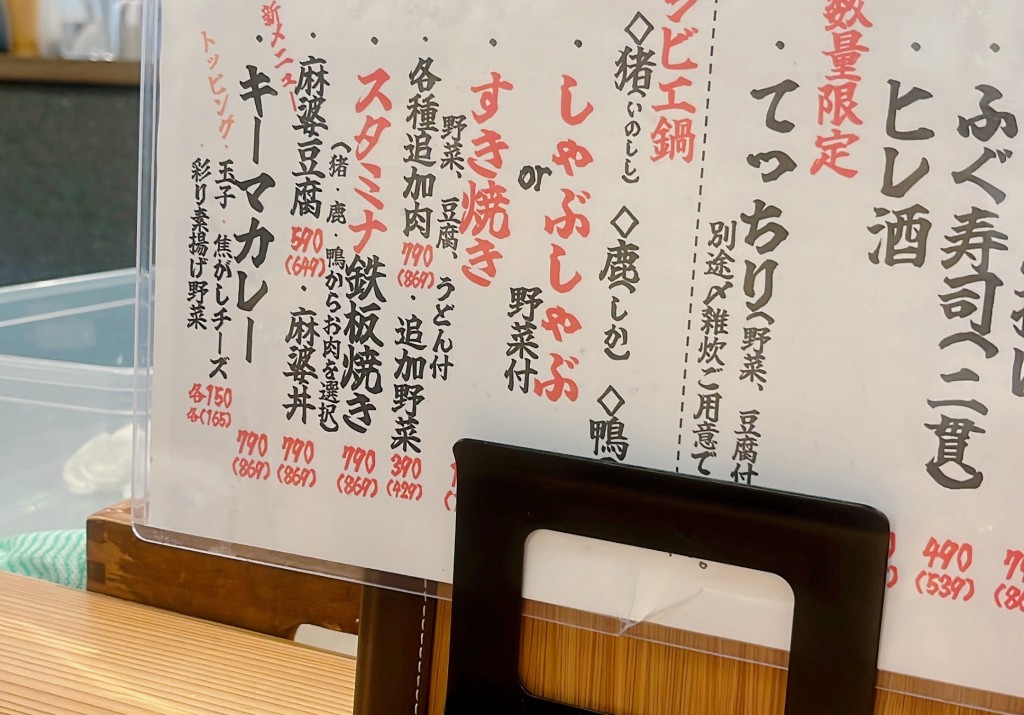 ふぐ寿司(二貫)
490
(539)
・ヒレ酒
数量限定
・てっちり(野菜、豆腐付
別途〆雑炊ご用意で
ジビエ鍋
◇猪(いのしし) ◇鹿(しか) ◇鴨(
・しゃぶしゃぶ
or
野菜付
・すき焼き
野菜、豆腐、うどん付
・各種追加肉 790 (869) ・追加野菜 390 (429)
・スタミナ鉄板焼き 790 (869)
(猪・鹿・鴨からお肉を選択
・麻婆豆腐 590 (649) ・麻婆丼 790 (869)
新メニュー
・キーマカレー 790 (869)
トッピング・玉子・焦がしチーズ
・彩り素揚げ野菜
各150
各(165)